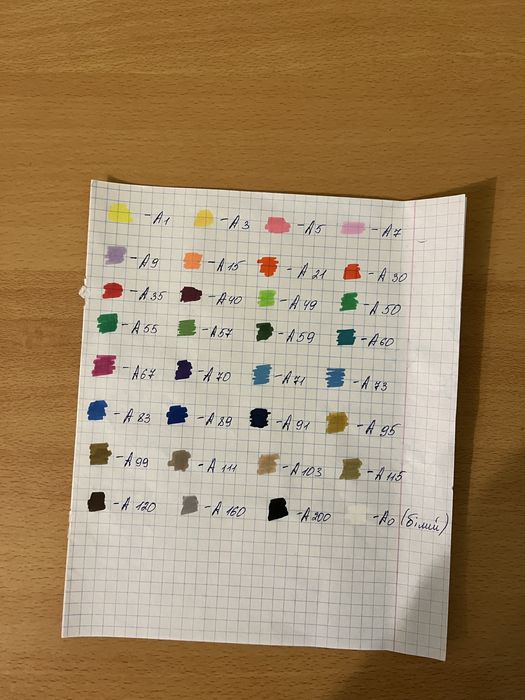 - A1 - A3 - A5 - A7
- A9 - A15 - A21 - A30
- A35 - A40 - A49 - A50
- A55 - A57 - A59 - A60
- A67 - A70 - A71 - A73
- A83 - A89 - A91 - A95
- A99 - A111 - A103 - A115
- A120 - A160 - A200 - A0 (білий)